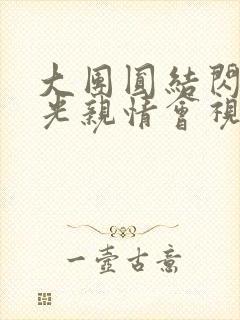 大團圓結閃
光親情會視
一壺古意